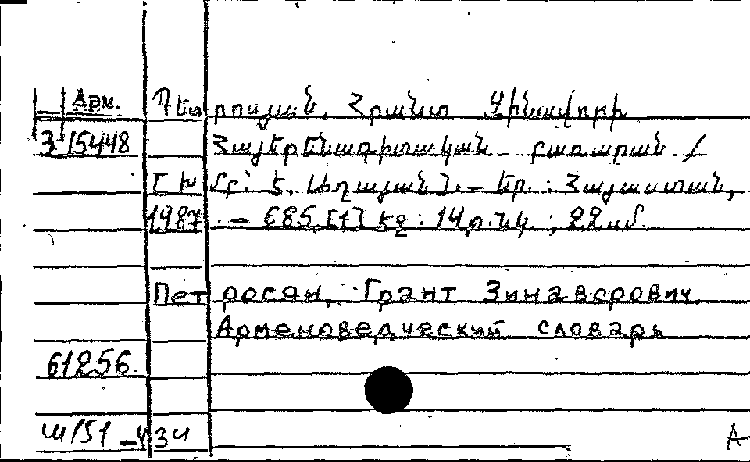 Арм. Պետրոսյան, Հրանտ Զինավորի
3 15448 Հայերենագիտական բառարան /
[Խմբ՝ Է. Աղայան]. – Եր. : Հայաստան,
1987. – 685, [1] էջ : 14 թ. նկ. ; 22 սմ.
Петросян, Грант Зинаворович.
Арменоведческий словарь
61256.
A